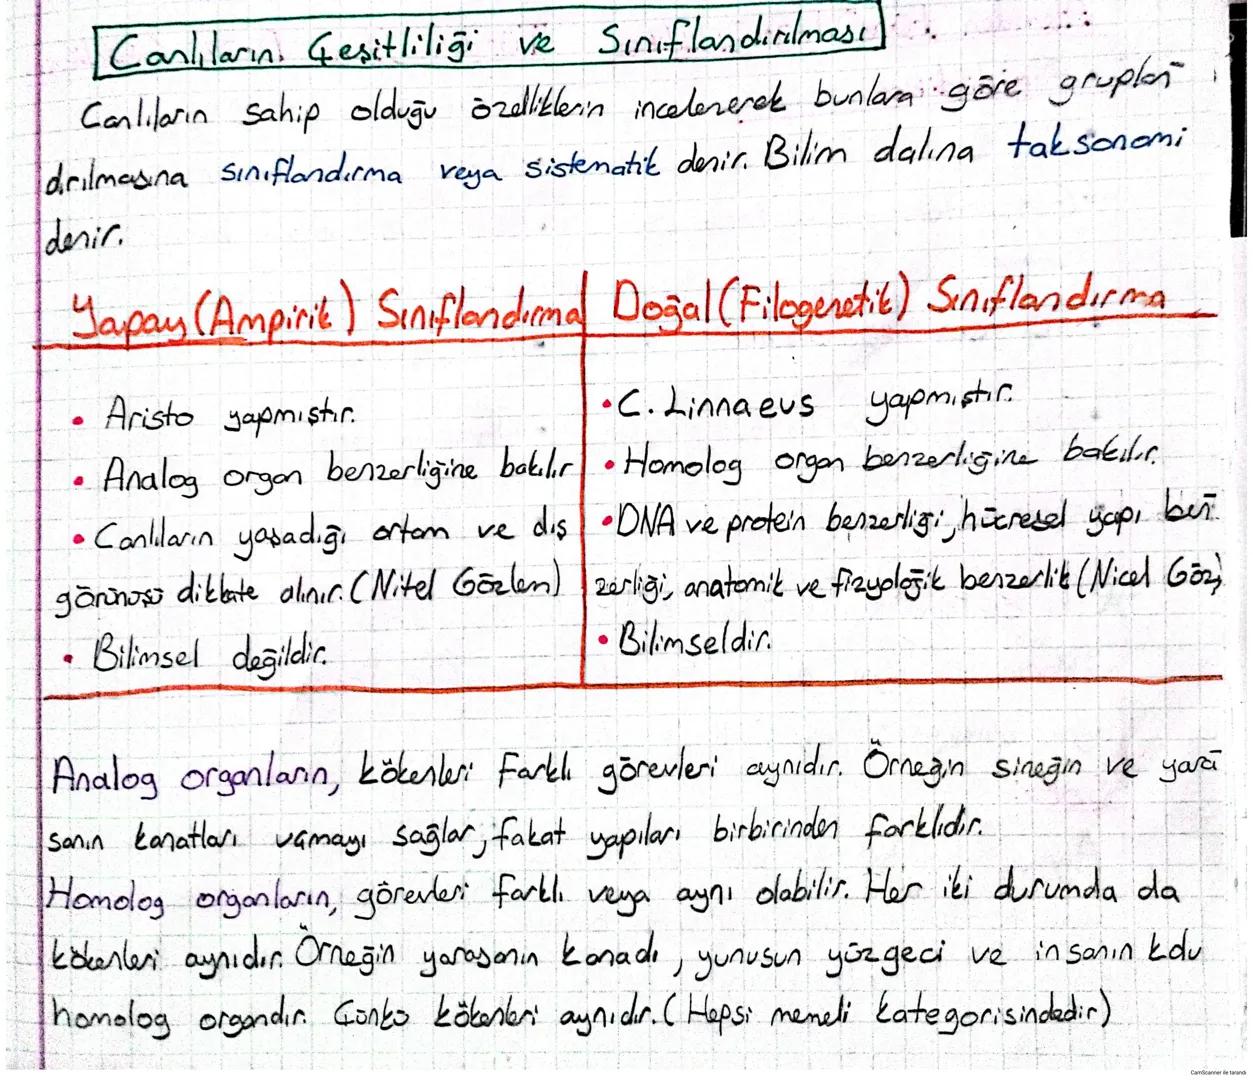 Canlıların Çeşitliliği ve Sınıflandırılması
Canlıların sahip olduğu özelliklerin incelenerek bunlara göre gruplan
dırılmasına sınıflandırma veya sistematik denir. Bilim dalına taksonomi
denir.
Yapay (Ampirik) Sınıflandırma
• Aristo yapmıştır.
• Analog organ benzerliğine bakılır
• Canlıların yaşadığı ortam ve dış
görünüşü dikkate alınır. (Nitel Gözlem)
• Bilimsel değildir.
Doğal (Filogenetik) Sınıflandırma
• C. Linnaeus yapmıştır.
• Homolog organ benzerliğine bakılır.
• DNA ve protein benzerliği, hücresel yapı ben
zerliği, anatomik ve fizyolojik benzerlik (Nicel Göz)
• Bilimseldir.
Analog organların, kökenleri farklı görevleri aynıdır. Örneğin sineğin ve yara
sanın kanatları uçmayı sağlar, fakat yapıları birbirinden farklıdır.
Homolog organların, görevleri farklı veya aynı olabilir. Her iki durumda da
kökenleri aynıdır. Örneğin yarasanın kanadı, yunusun yüzgeci ve insanın kolu
homolog organdır. Çünkü kökenleri aynıdır. (Hepsi memeli kategorisindedir)
CamScanner ile tarandı